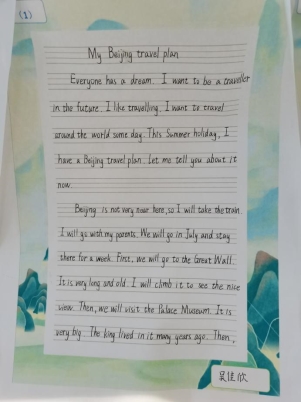 (1)
My Beijing travel plan
Everyone has a dream. I want to be a traveller
in the future. I like travelling. I want to travel
around the world some day. This Summer holiday, I
have a Beijing travel plan. Let me tell you about it
now.
Beijing is not very near here, so I will take the train.
I will go with my parents. We will go in July and stay
there for a week. First, we will go to the Great Wall.
It is very long and old. I will climb it to see the nice
view. Then, we will visit the Palace Museum. It is
very big. The king lived in it many years ago. Then,
吴佳欣